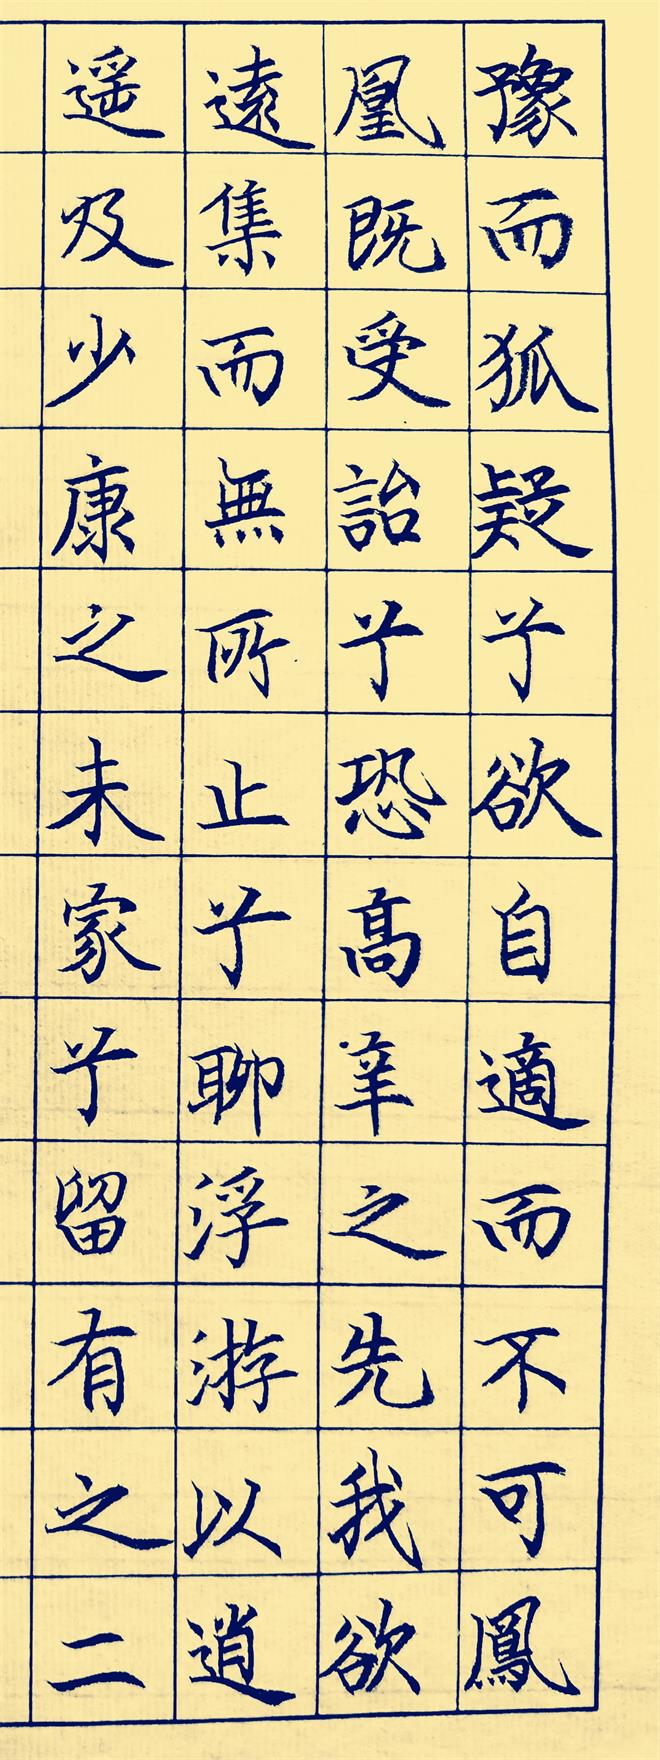 豫而狐疑兮欲自適而不可鳳
凰既受詒兮恐高辛之先我欲
遠集而無所止兮聊浮游以逍
遙及少康之未家兮留有之二